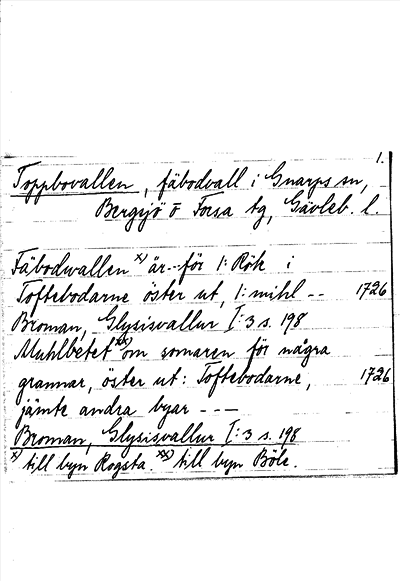 1.
Toppbovallen, fäbodvall i Gnarps sn,
Bergsjö o Forsa tg, Gävleb. l.
Fäbodwallen x) är -- för 1: Rök i
Toftebodarne öster ut, 1: mihl -- 1726
Broman, Glysisvallur I:3 s. 198
Muhlbetet xx) om somaren för några
grannar, öster ut: Toftebodarne, 1726
jämte andra byar ---
Broman, Glysisvallur I:3 s. 198
x) till byn Rogsta. xx) till byn Böle.